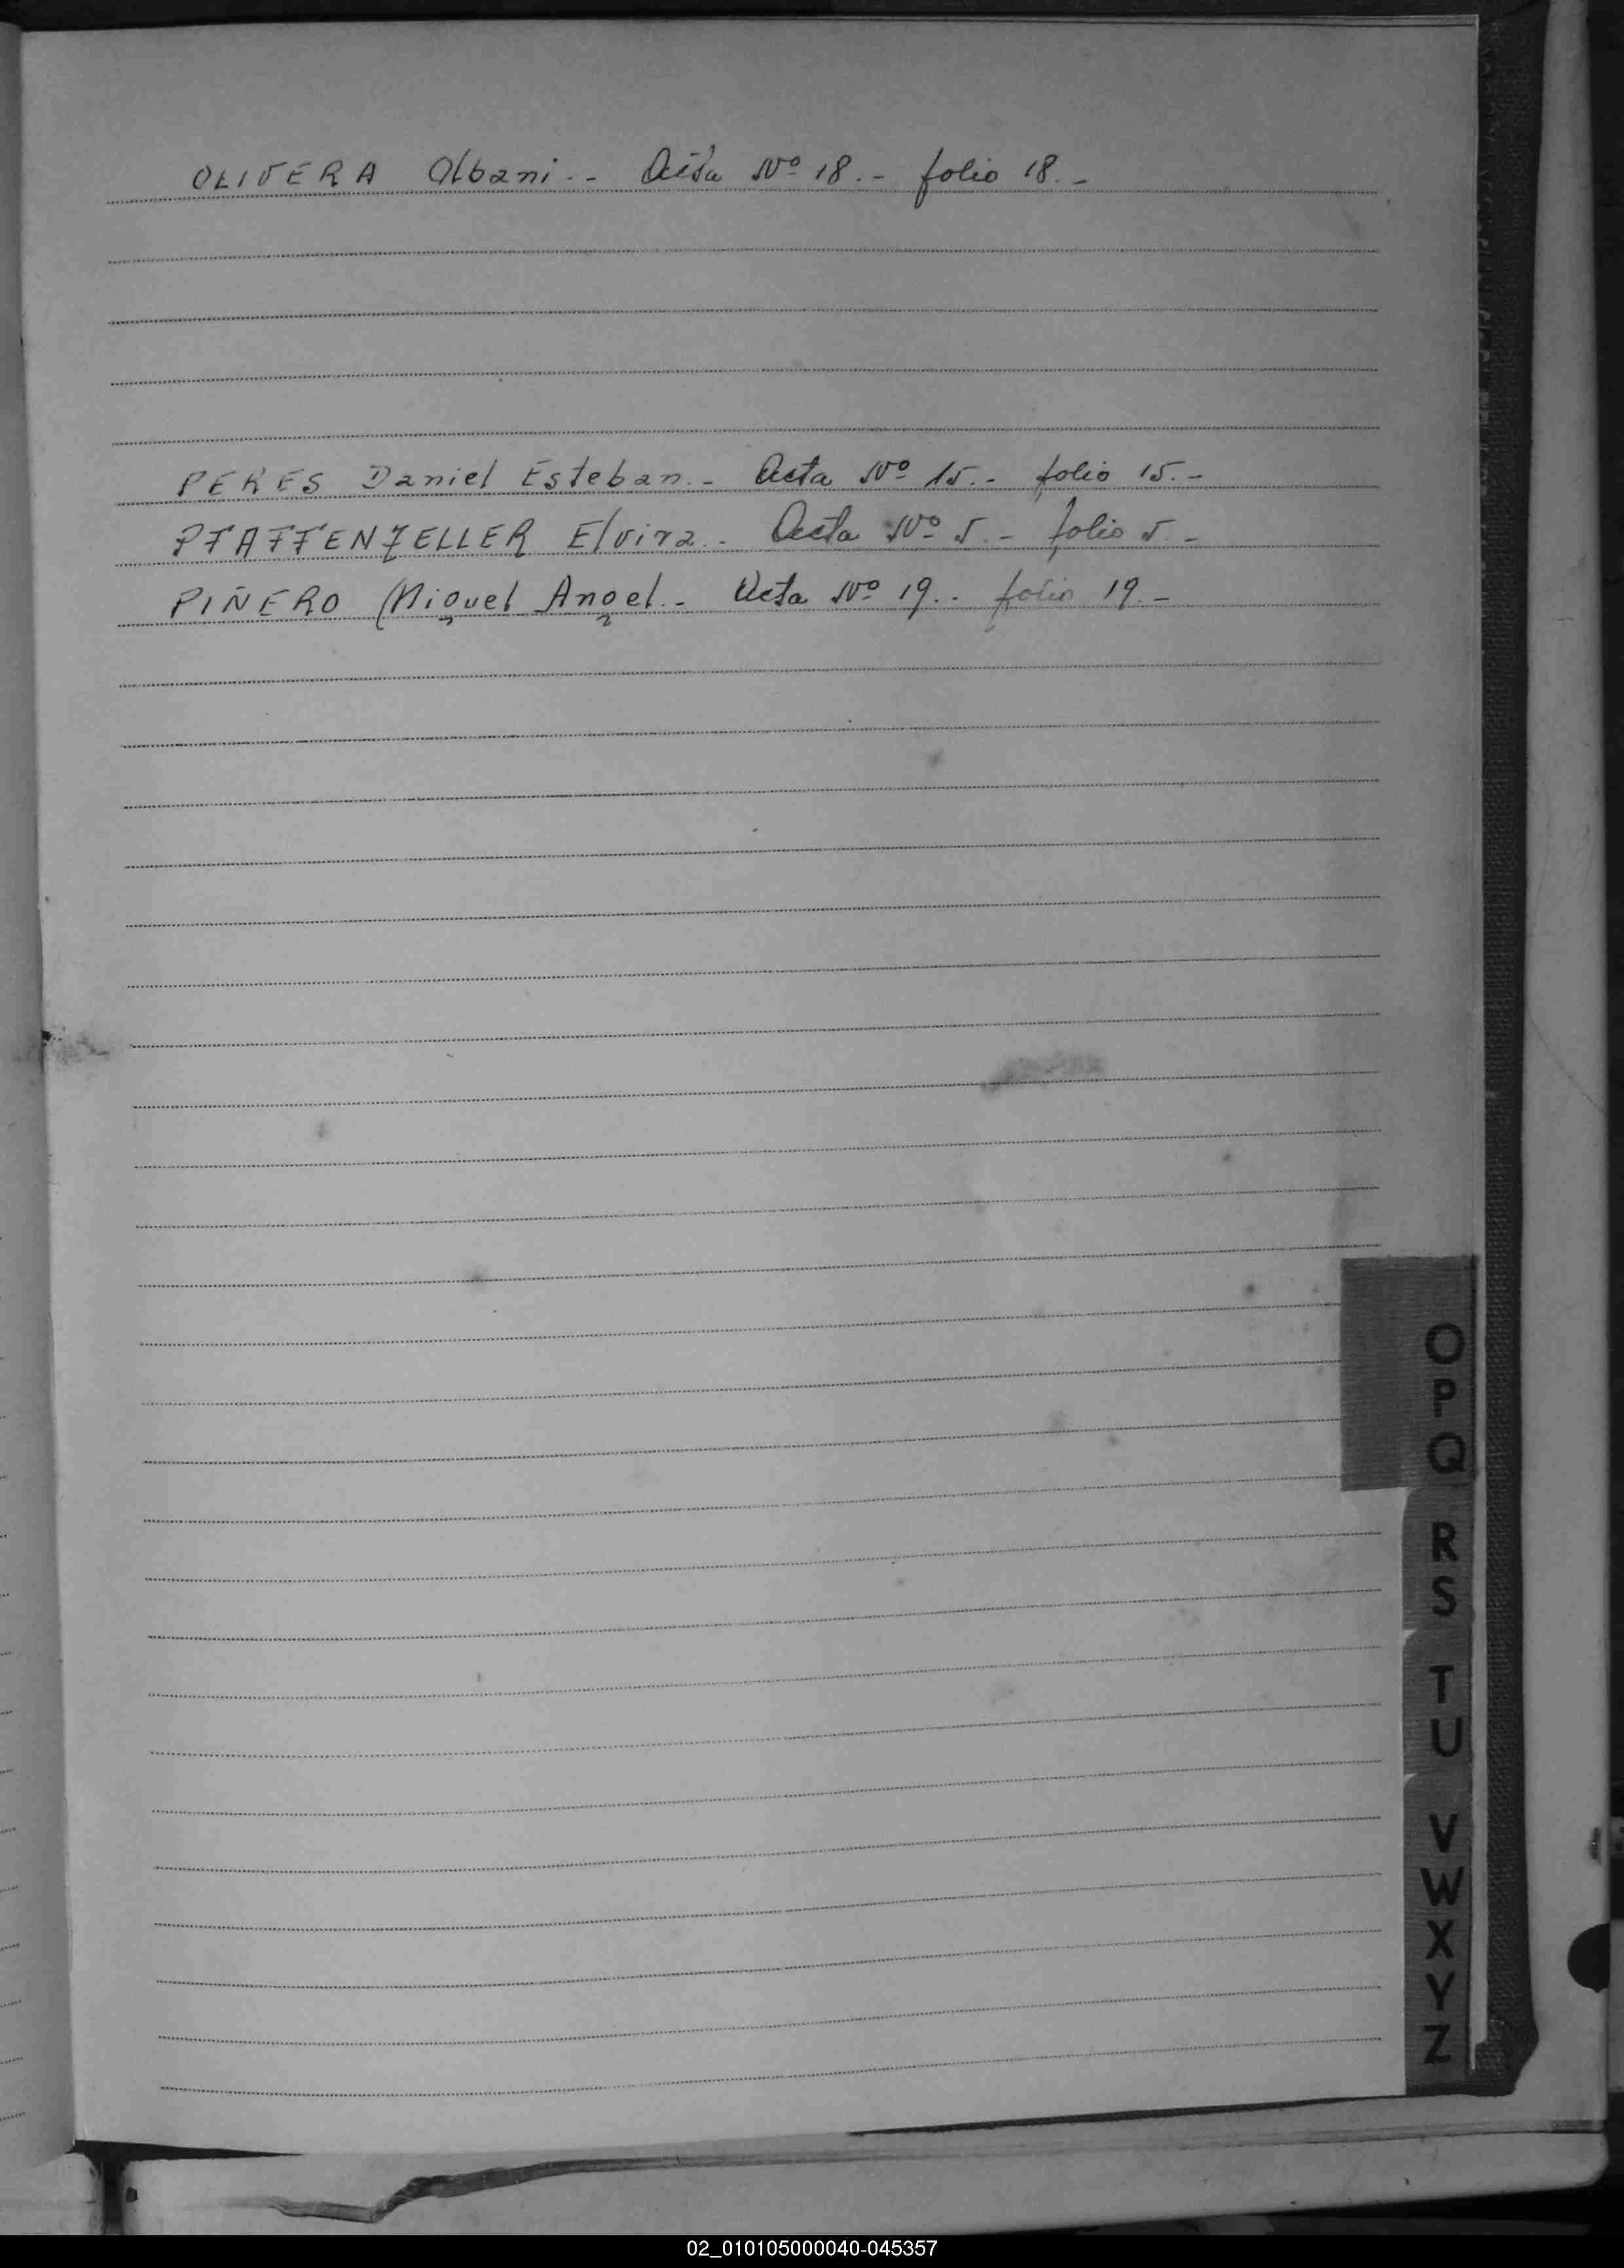 OLIVERA Albani.- Acta Nº 18.- folio 18.-
PERES Daniel Esteban.- Acta Nº 15.- folio 15.-
PFAFFENZELLER Elvira.- Acta Nº 5.- folio 5.-
PIÑERO Miguel Angel.- Acta Nº 19.- folio 19.-
O
P
Q
R
S
T
U
V
W
X
Y
Z
02_010105000040-045357